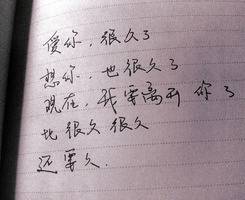 愛你，很久了
想你，也很久了
现在，我要离开你了
比很久很久
还要久.